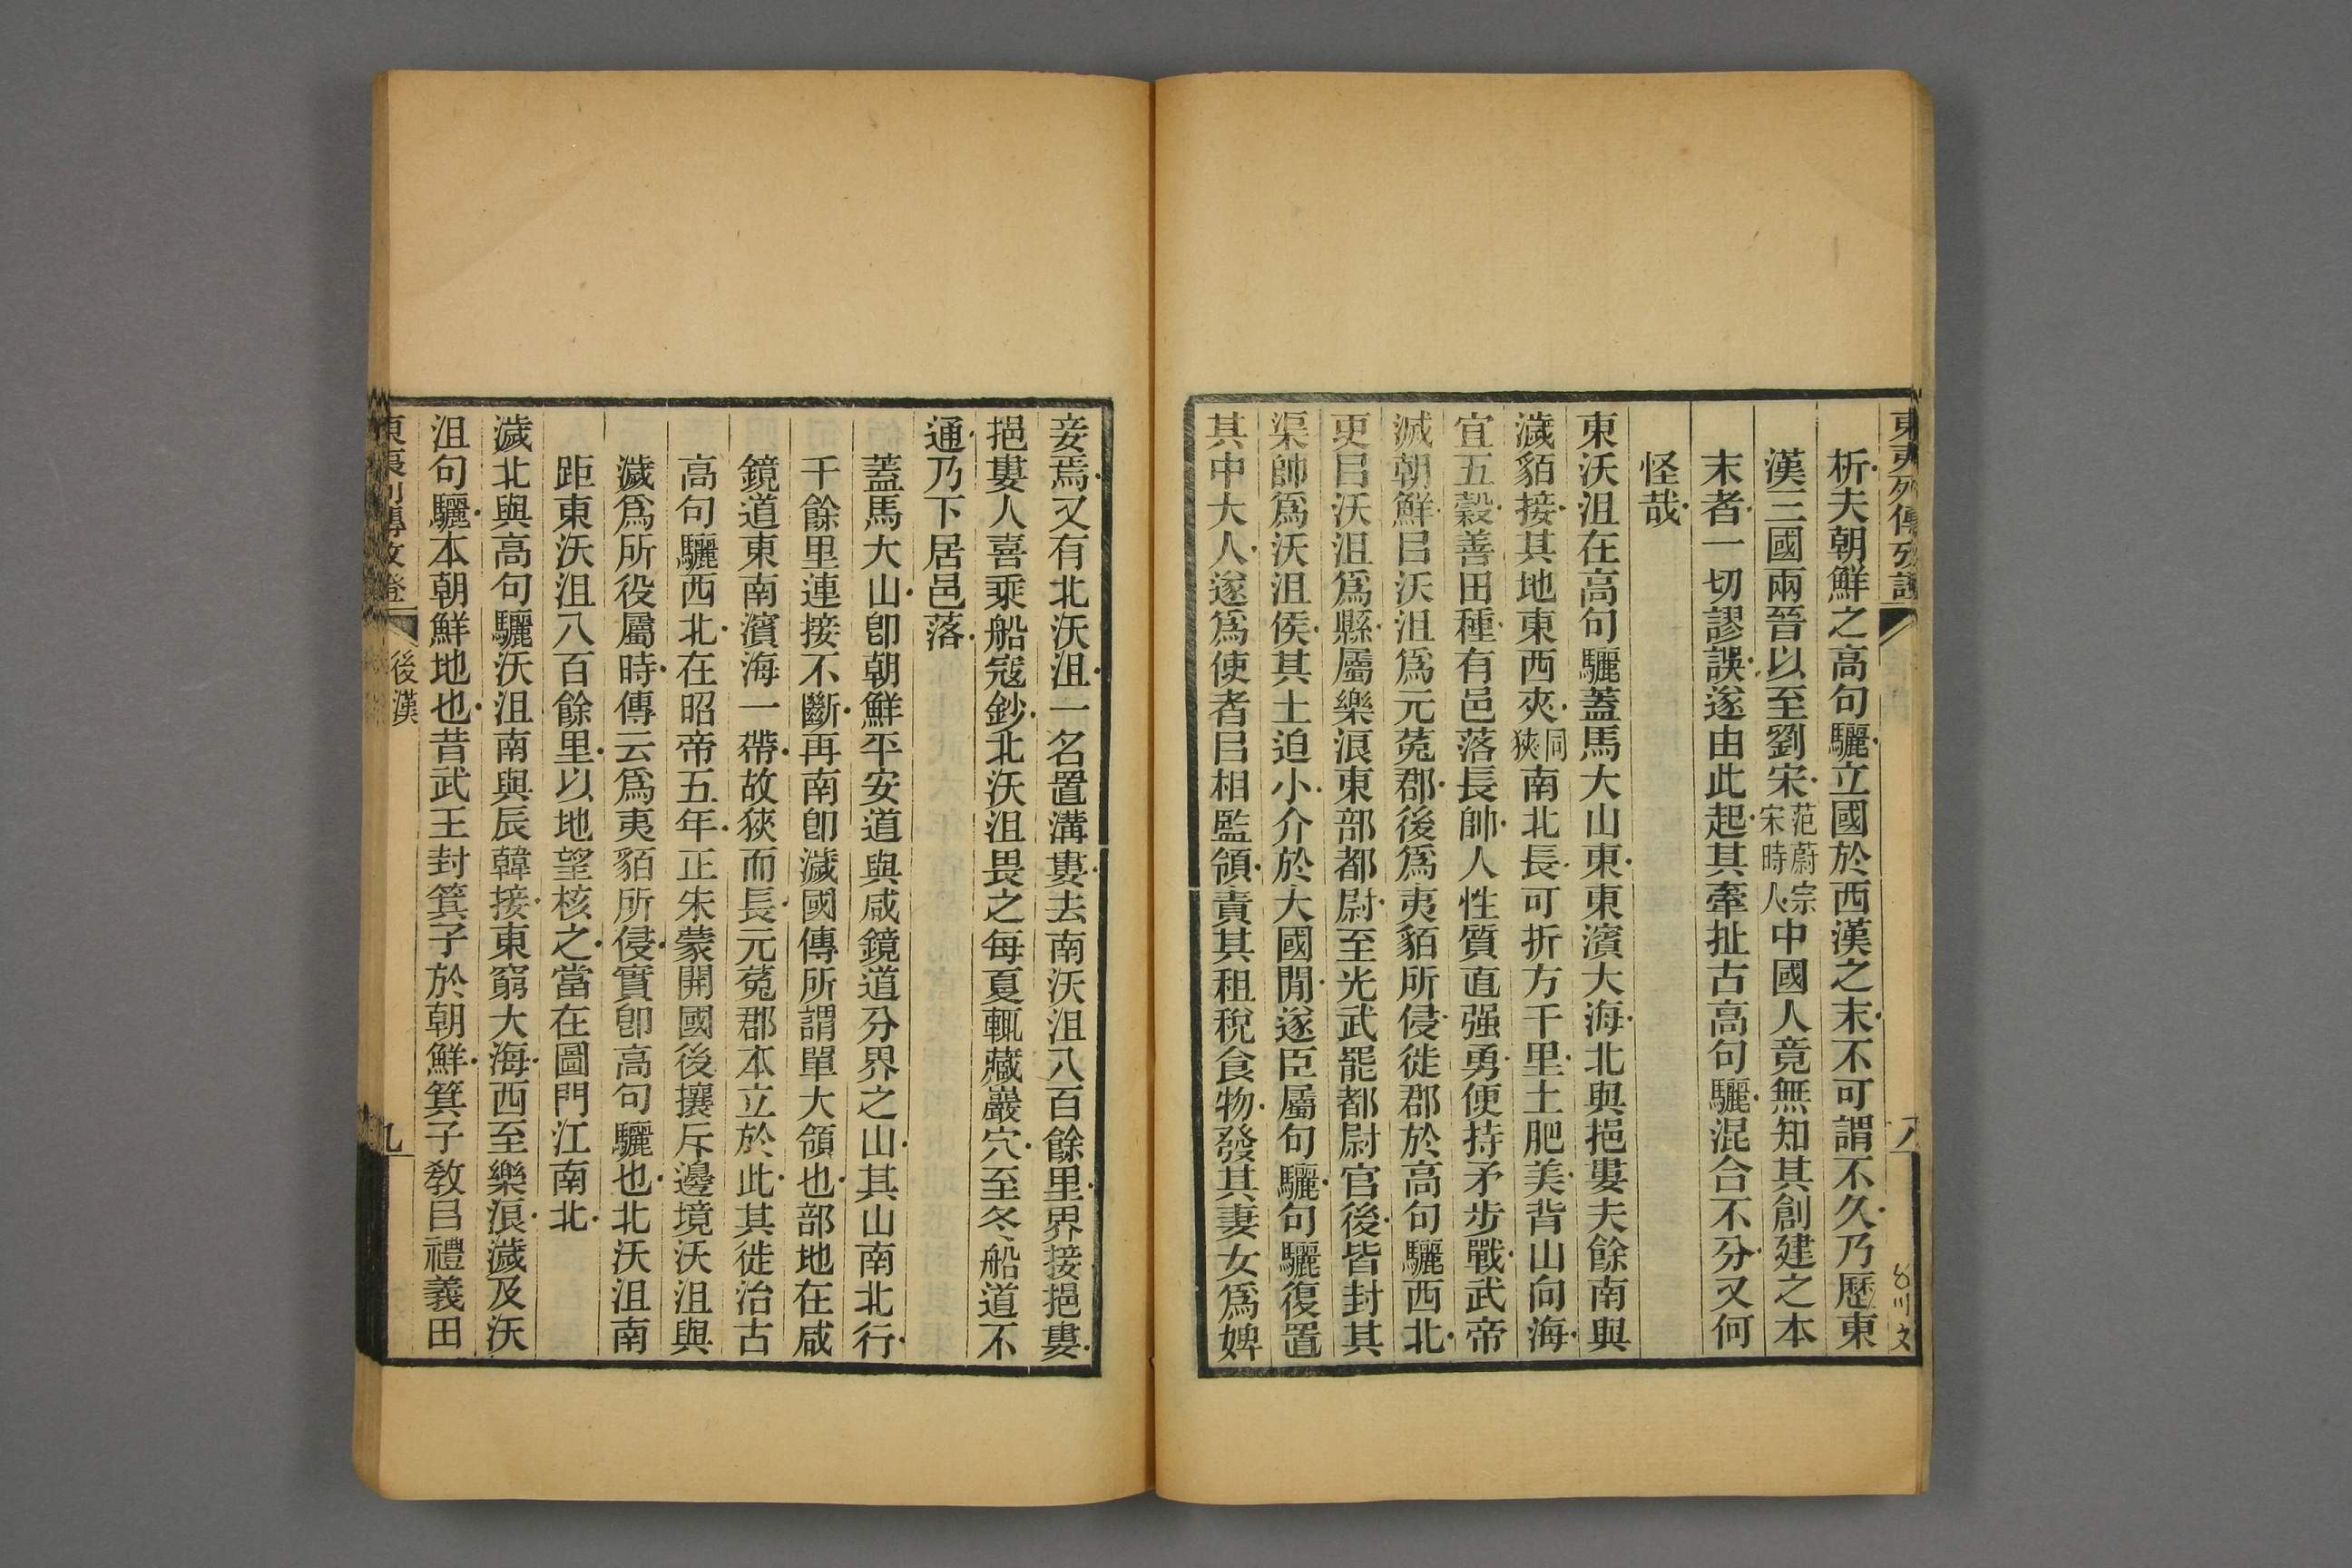 東夷列傳攷證
八
析夫朝鮮之高句驪立國於西漢之末不可謂不久乃歷東
漢三國兩晉以至劉宋范蔚宗宋時人中國人竟無知其創建之本
末者一切謬誤遂由此起其牽扯古高句驪混合不分又何
怪哉
東沃沮在高句驪蓋馬大山東東濱大海北與挹婁夫餘南與
濊貊接其地東西夾同狹南北長可折方千里土肥美背山向海
宜五穀善田種有邑落長帥人性質直强勇便持矛步戰武帝
滅朝鮮㠯沃沮爲元菟郡後爲夷貊所侵徙郡於高句驪西北
更㠯沃沮爲縣屬樂浪東部都尉至光武罷都尉官後皆封其
渠帥爲沃沮侯其土迫小介於大國閒遂臣屬句驪句驪復置
其中大人遂爲使者㠯相監領責其租稅食物發其妻女爲婢
妾焉又有北沃沮一名置溝婁去南沃沮八百餘里界接挹婁
挹婁人喜乘船寇鈔北沃沮畏之每夏輒藏巖穴至冬船道不
通乃下居邑落
蓋馬大山卽朝鮮平安道與咸鏡道分界之山其山南北行
千餘里連接不斷再南卽濊國傳所謂單大領也部地在咸
鏡道東南濱海一帶故狹而長元菟郡本立於此其徙治古
高句驪西北在昭帝五年正朱蒙開國後攘斥邊境沃沮與
濊爲所役屬時傳云爲夷貊所侵實卽高句驪也北沃沮南
距東沃沮八百餘里以地望核之當在圖門江南北
濊北與高句驪沃沮南與辰韓接東窮大海西至樂浪濊及沃
沮句驪本朝鮮地也昔武王封箕子於朝鮮箕子敎㠯禮義田
東夷列傳攷證
後漢
九